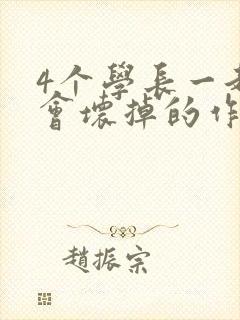 4个學長一
會壞掉的作
趙振宗